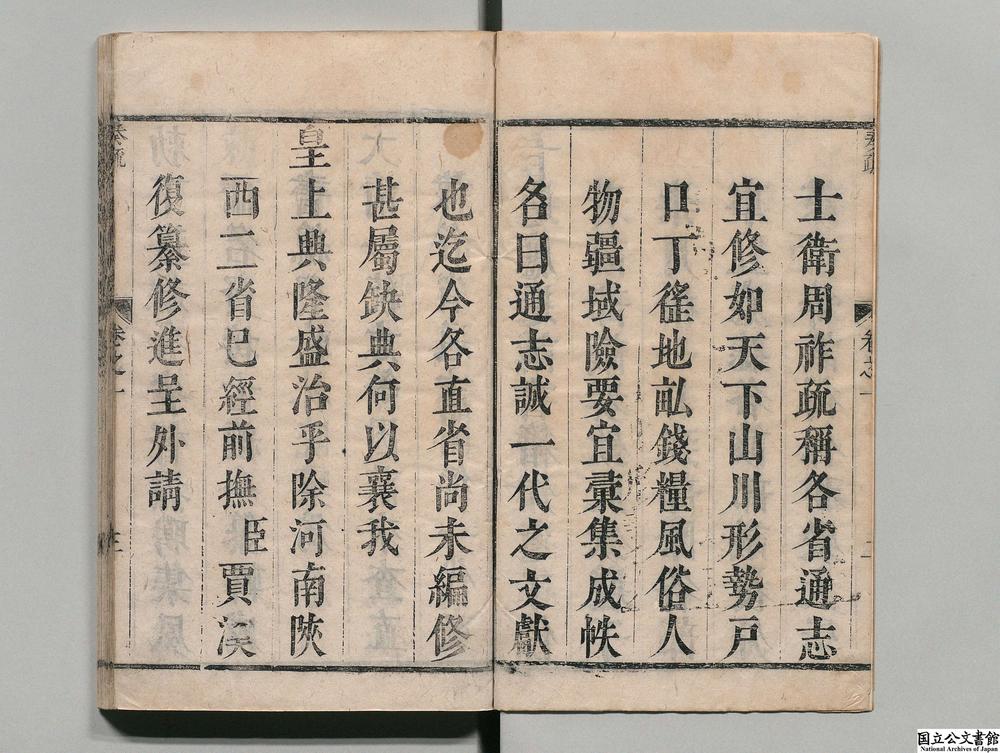 士衛周祚疏稱各省通志
宜修如天下山川形勢戸
口丁徭地畆錢糧風俗人
物疆域險要宜彚集成帙
名曰通志誠一代之文獻
也迄今各直省尚未編修
甚屬缺典何以襄我
皇上典隆盛治乎除河南陜
西二省已經前撫臣賈漢
復纂修進呈外請
奏疏
卷之一
国立公文書館
National Archives of Japan